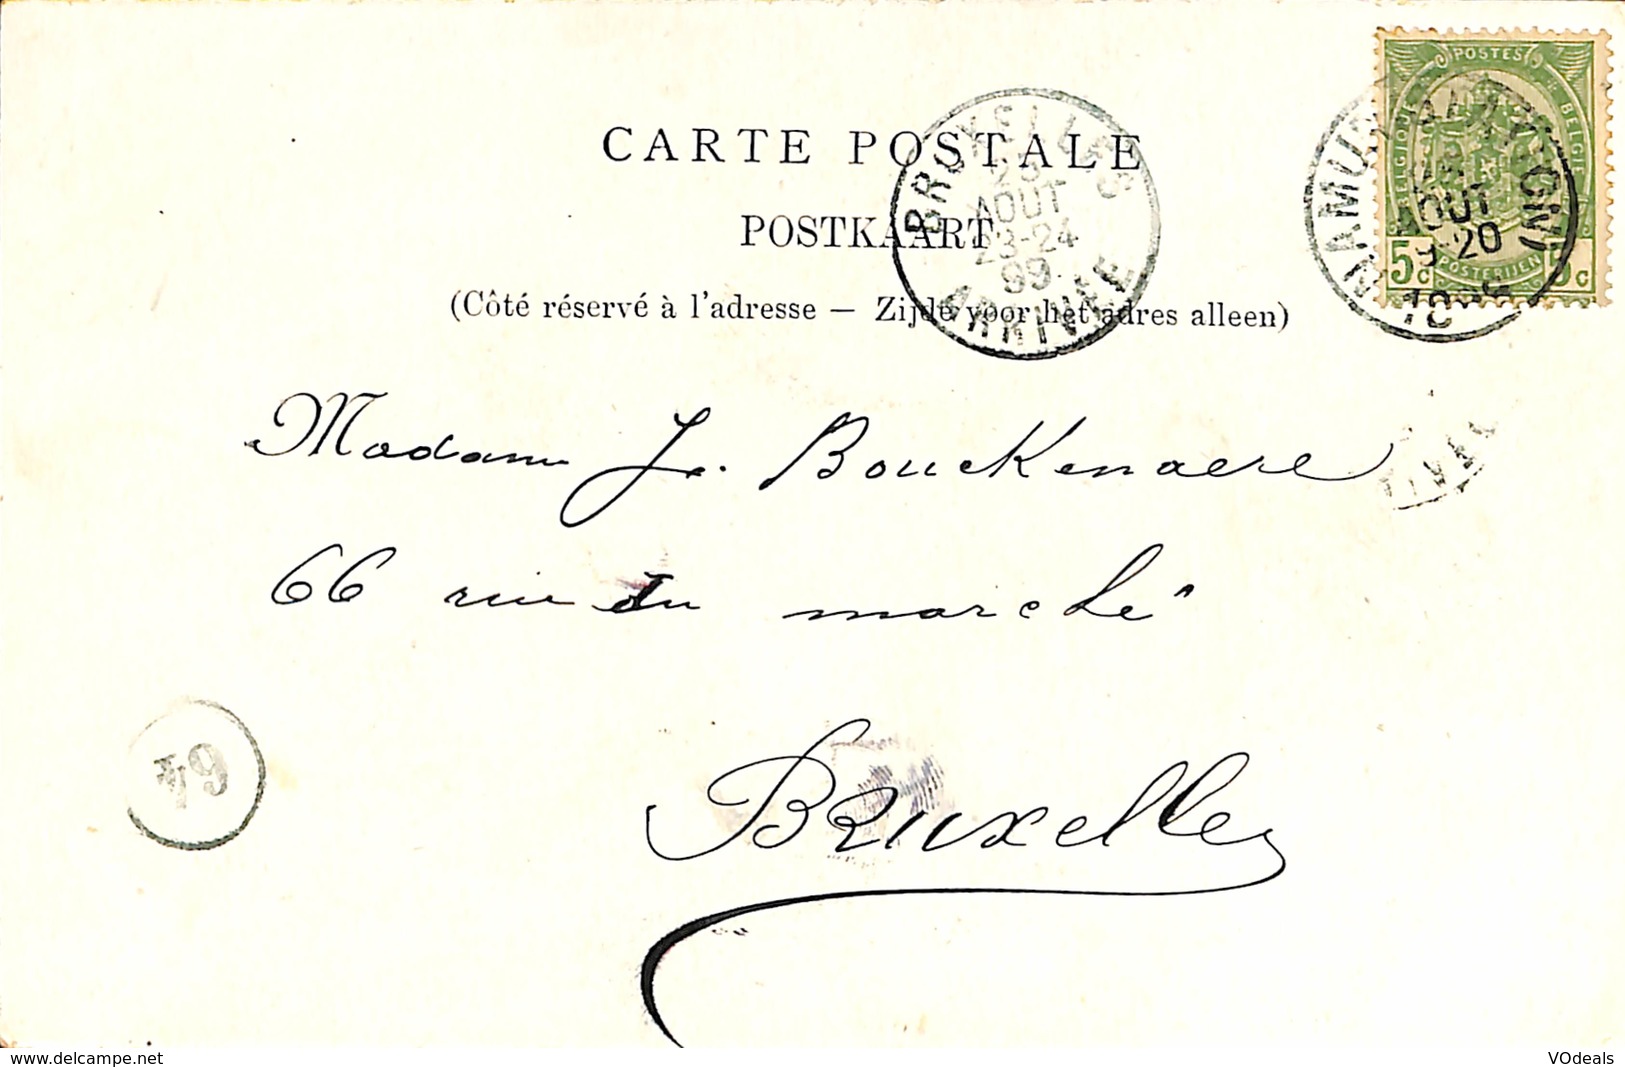 CARTE POSTALE
POSTKAART
(Côté réservé à l'adresse — Zijde voor het adres alleen)
BRUXELLES
25
AOUT
23-24
99
ARRIVEE
POSTES
BELGIQUE
BELGIË
5c
POSTERIJEN
5c
NAMUR
AOUT
9-20
Madame J. Bouckenaere
66 rue du marché
Bruxelles
64
www.delcampe.net
VOdeals